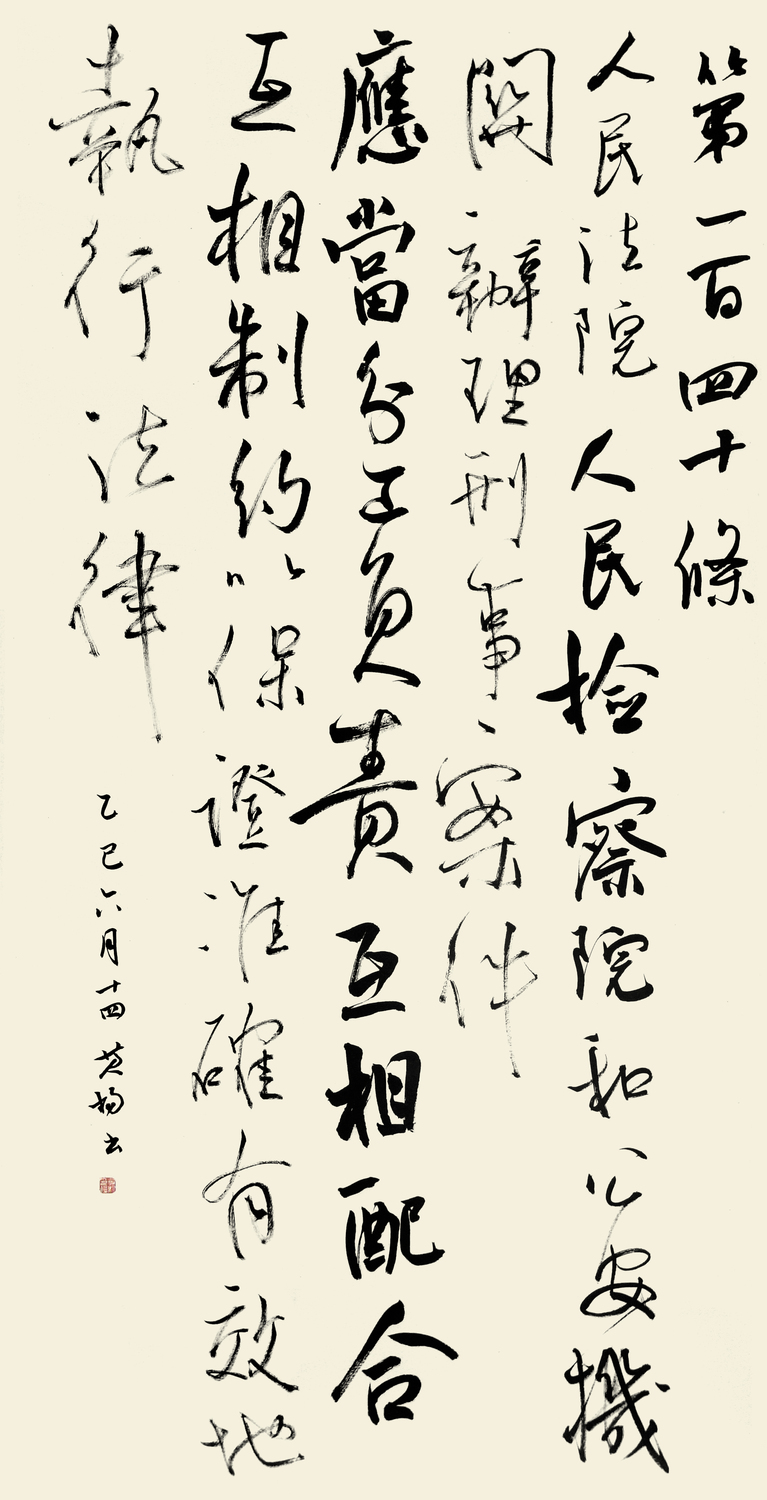 第一百四十條
人民法院人民檢察院和公安機
關辦理刑事案件
應當分工負責互相配合
互相制約以保證准確有效地
執行法律
乙巳六月十四英楊書